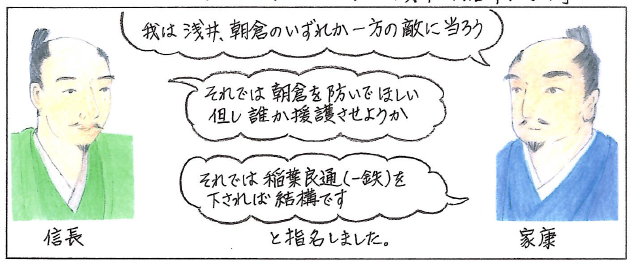 我は浅井、朝倉のいずれか一方の敵に当ろう
それでは朝倉を防いでほしい
但し誰か援護させようか
それでは稲葉良通(一鉄)を
下されば結構です
信長
と指名しました。
家康